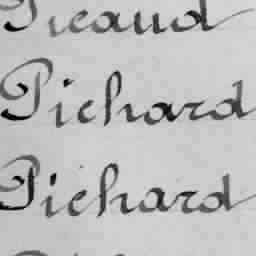 Picaud
Pichard
Pichard